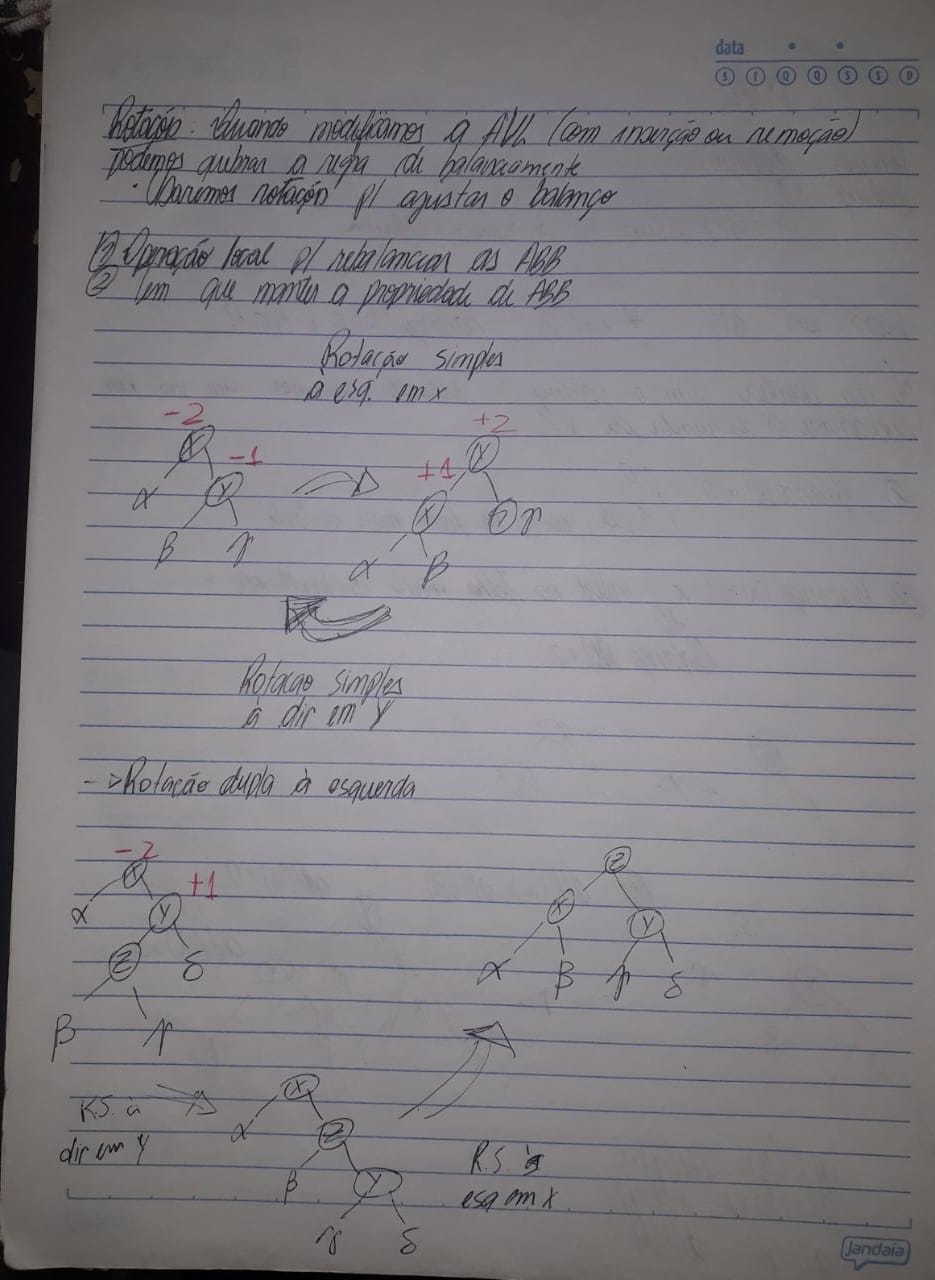 data
S T Q Q S S D
Rotação: Quando modificamos a AVL (com inserção ou remoção)
podemos quebrar a regra de balanceamente
· Daremos rotação p/ ajustar o balanço
1 Operação local p/ rebalancear as ABB
2 tem que manter a propriedade de ABB
Rotação simples
à esq. em x
-2 +2
X Y
-1 +1
α Y X γ
β γ α β
Rotação simples
à dir em Y
-> Rotação dupla à esquerda
-2
X Z
+1
α Y X Y
Z δ α β γ δ
β γ
R.S. à X
dir em Y α Z
R.S. à
β Y esq em X
γ δ
jandaia